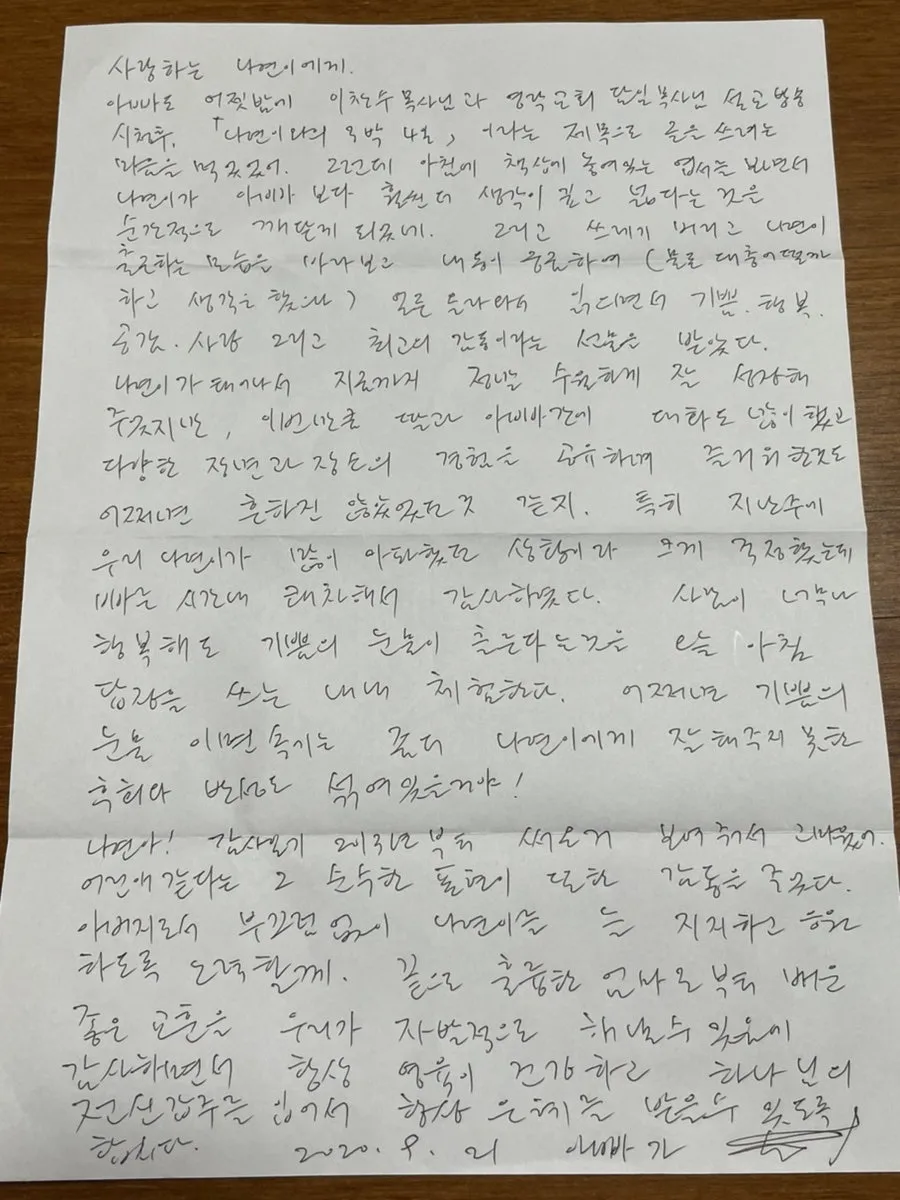 사랑하는 나연이에게.
아빠도 어젯밤에 이찬수 목사님과 영락교회 담임목사님 설교방송
시청후, 「나연이와의 3박 4일」이라는 제목으로 글을 쓰려는
마음을 먹었었어. 그런데 아침에 책상에 놓여있는 엽서를 보면서
나연이가 아비가 보다 훨씬 더 생각이 깊고 넓다는 것을
순간적으로 깨닫게 되었네. 그리고 쓰레기 버리고 나연이
출근하는 모습을 바라보고 내용이 궁금하여 (물론 대충어떨까
하고 생각은 했으나) 얼른 올라와서 읽으면서 기쁨. 행복.
공감. 사랑 그리고 최고의 감동이라는 선물을 받았다.
나연이가 태어나서 지금까지 정말 수월하게 잘 성장해
주었지만, 이번만큼 딸과 아비간에 대화도 많이 했고
다양한 장면과 장소의 경험을 공유하며 즐거워한것도
어쩌면 흔하진 않았었던것 같지. 특히 지난주에
우리 나연이가 많이 아파했던 상황이라 크게 걱정했는데
빠른 시간내 쾌차해서 감사하였다. 사람이 너무나
행복해도 기쁨의 눈물이 흐른다는것을 오늘 아침
답장을 쓰는 내내 체험한다. 어쩌면 기쁨의
눈물 이면속에는 좀더 나연이에게 잘해주지 못한
후회와 반성도 섞여있을거야!
나연아! 감사일기 2013년부터 써온거 보여줘서 고마웠어.
어린애 같다는 그 순수한 표현이 또한 감동을 주었다.
아버지로서 부끄럼 없이 나연이를 늘 지지하고 응원
하도록 노력할게. 끝으로 훌륭한 엄마로부터 배운
좋은 교훈을 우리가 자발적으로 해낼수 있음에
감사하면서 항상 영육이 건강하고 하나님의
전신갑주를 입어서 항상 은혜를 받을수 있도록
합시다. 2020. 9. 21 아빠가